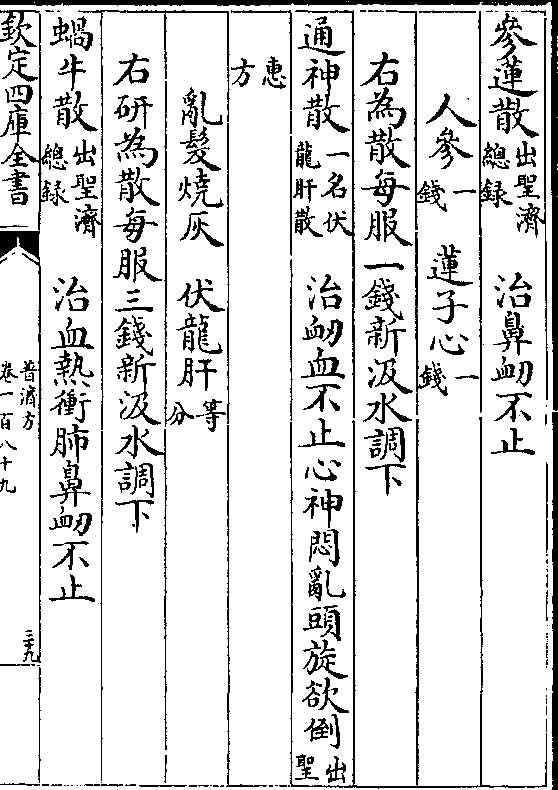 參蓮散出聖濟總録　治鼻衂不止
人參一錢　蓮子心一錢
右為散每服一錢新汲水調下
通神散一名伏龍肝散　治衂血不止心神悶亂頭旋欲倒出聖
惠方
亂髮燒灰　伏龍肝等分
右研為散每服三錢新汲水調下
蝸牛散出聖濟總録　治血熱衝肺鼻衂不止
欽定四庫全書
普濟方
卷一百八十九
三九